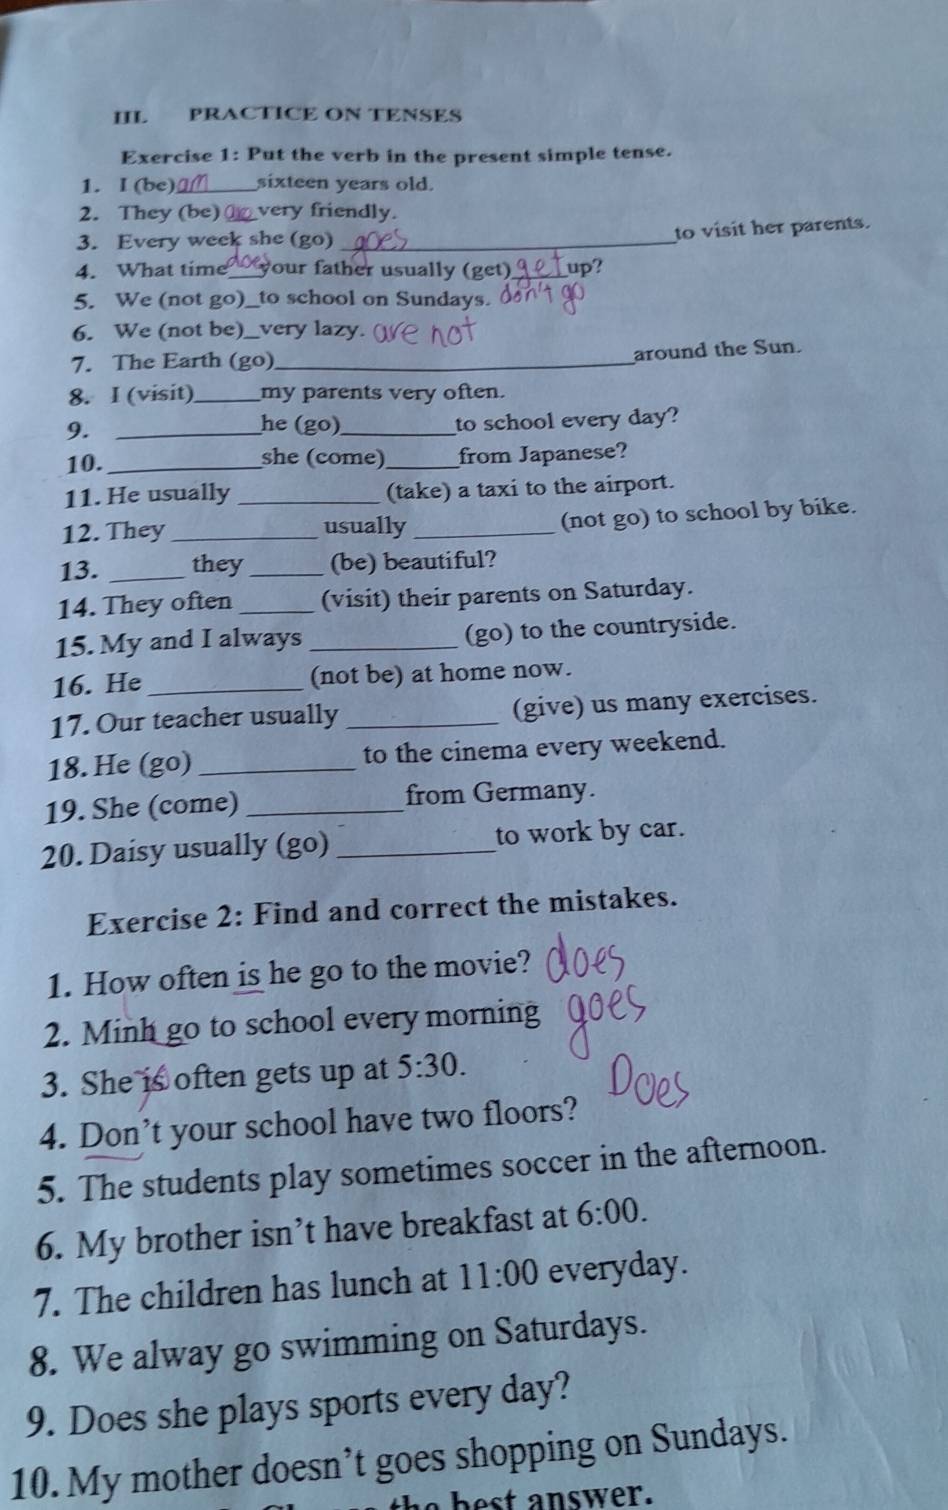 III. PRACTICE ON TENSES
Exercise 1: Put the verb in the present simple tense.
1. I (be) am sixteen years old.
2. They (be) are very friendly.
3. Every week she (go) goes to visit her parents.
4. What time does your father usually (get) get up?
5. We (not go)_to school on Sundays. don't go
6. We (not be)_very lazy. are not
7. The Earth (go)____________________around the Sun.
8. I (visit)_____my parents very often.
9. __________he (go)________to school every day?
10. __________she (come)_____from Japanese?
11. He usually __________ (take) a taxi to the airport.
12. They __________ usually __________ (not go) to school by bike.
13. _____ they _____ (be) beautiful?
14. They often _____ (visit) their parents on Saturday.
15. My and I always __________ (go) to the countryside.
16. He __________ (not be) at home now.
17. Our teacher usually __________ (give) us many exercises.
18. He (go) __________ to the cinema every weekend.
19. She (come) __________from Germany.
20. Daisy usually (go) __________to work by car.
Exercise 2: Find and correct the mistakes.
1. How often is he go to the movie? does
2. Minh go to school every morning goes
3. She is often gets up at 5:30.
4. Don't your school have two floors? Does
5. The students play sometimes soccer in the afternoon.
6. My brother isn't have breakfast at 6:00.
7. The children has lunch at 11:00 everyday.
8. We alway go swimming on Saturdays.
9. Does she plays sports every day?
10. My mother doesn't goes shopping on Sundays.
the best answer.